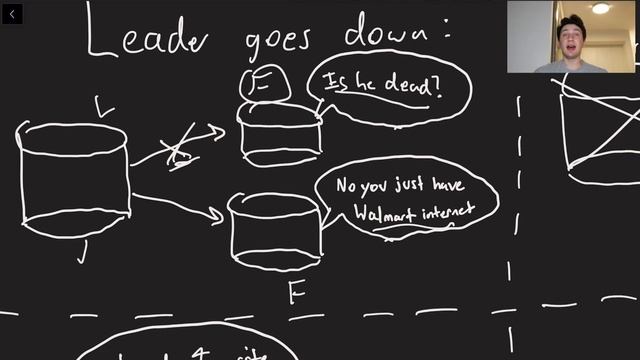 Leader goes down:
L
F
Is he dead?
No you just have
Walmart internet
F